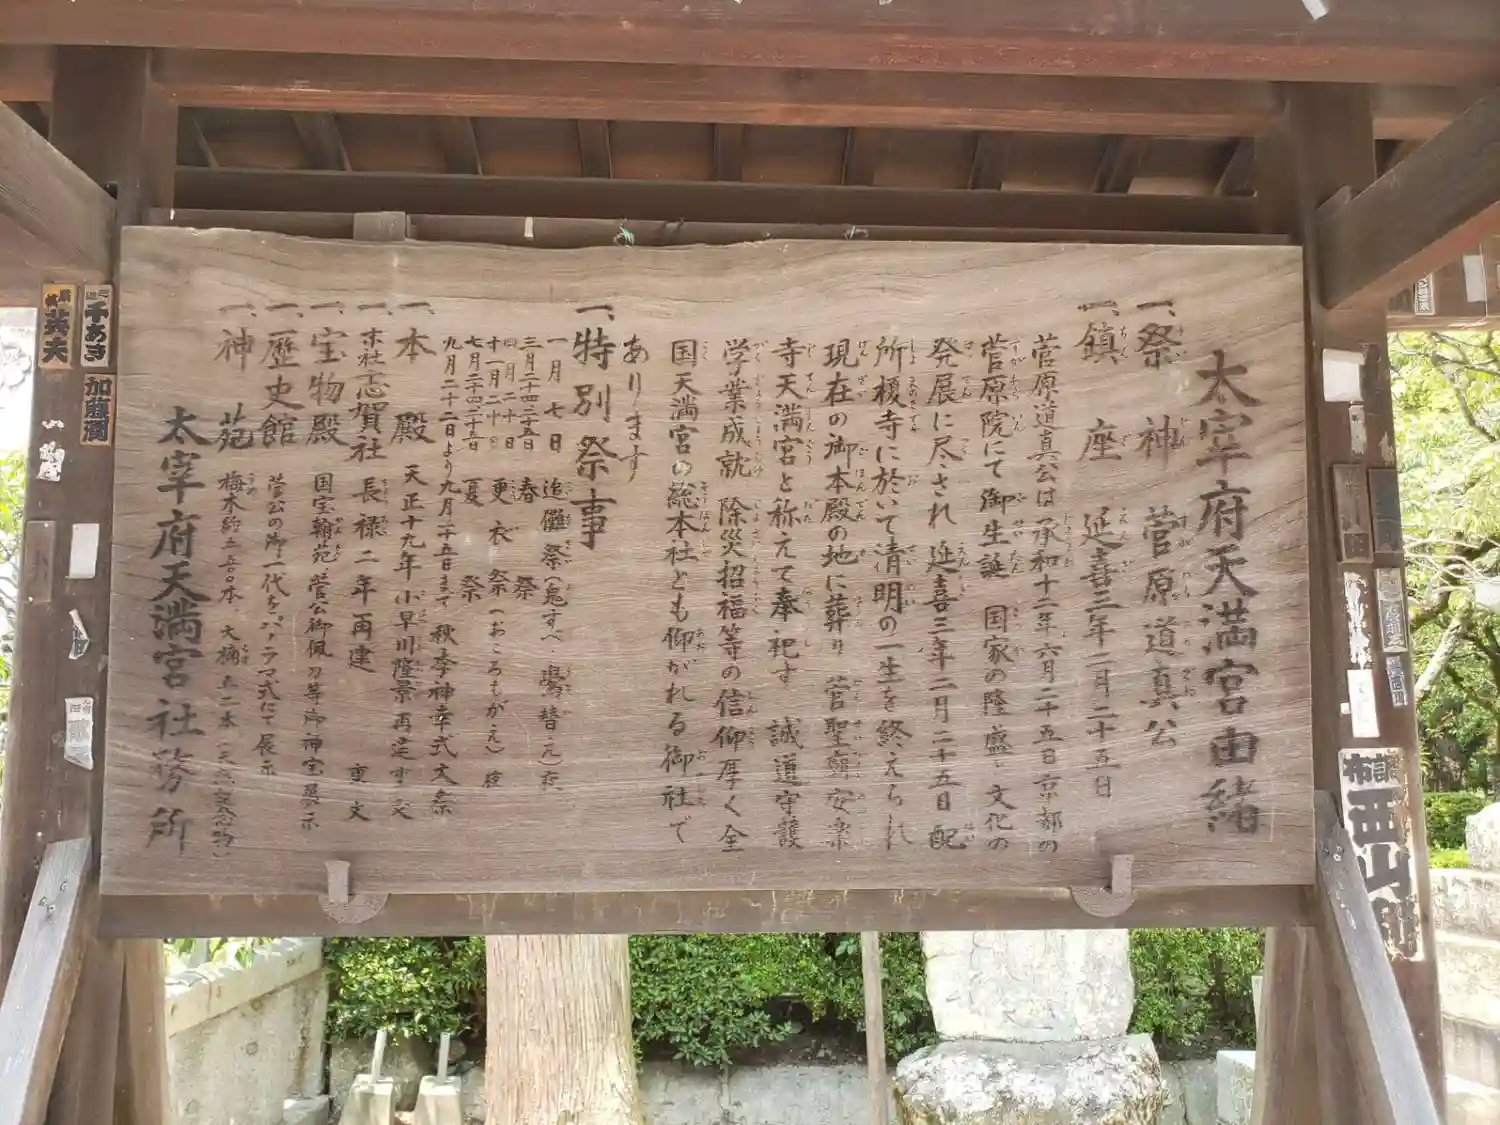 太宰府天満宮由緒
一、祭神 菅原道真公
一、鎮座 延喜三年二月二十五日
菅原道真公は承和十二年六月二十五日京都の
菅原院にて御生誕 国家の隆盛 文化の
発展に尽され 延喜三年二月二十五日 配
所榎寺に於いて清明の一生を終えられ
現在の御本殿の地に葬り 菅聖廟 安楽
寺天満宮と称えて奉祀す 誠道守護
学業成就 除災招福等の信仰厚く全
国天満宮の総本社とも仰がれる御社で
あります
一、特別祭事
一月七日 追儺祭(鬼すべ 鷽替え)
三月二十四二十五日 春祭
四月二十日
十一月二十日 更衣祭(おころもがえ)
七月二十四二十五日 夏祭
九月二十二日より九月二十五日まで 秋季神幸式大祭
一、本殿 天正十九年小早川隆景再建 重文
一、末社志賀社 長禄二年再建 重文
一、宝物殿 国宝翰苑 菅公御佩刀等御神宝展示
一、歴史館 菅公の御一代をパノラマ式にて展示
一、神苑 梅木 大樟
太宰府天満宮社務所
千あき
英夫
加藤潤
西山